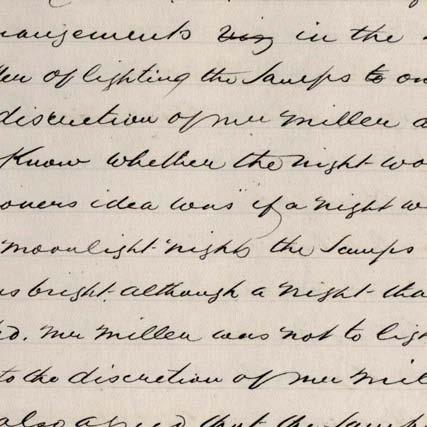 rangements in the
ter of lighting the Lamps to on
discretion of Mr Miller a
Know whether the night wo
oners idea was if a night w
moonlight nights the Lamps
as bright although a night tha
ed. Mr Miller was not to ligh
to the discretion of Mr Mil
also agreed that the Lamps